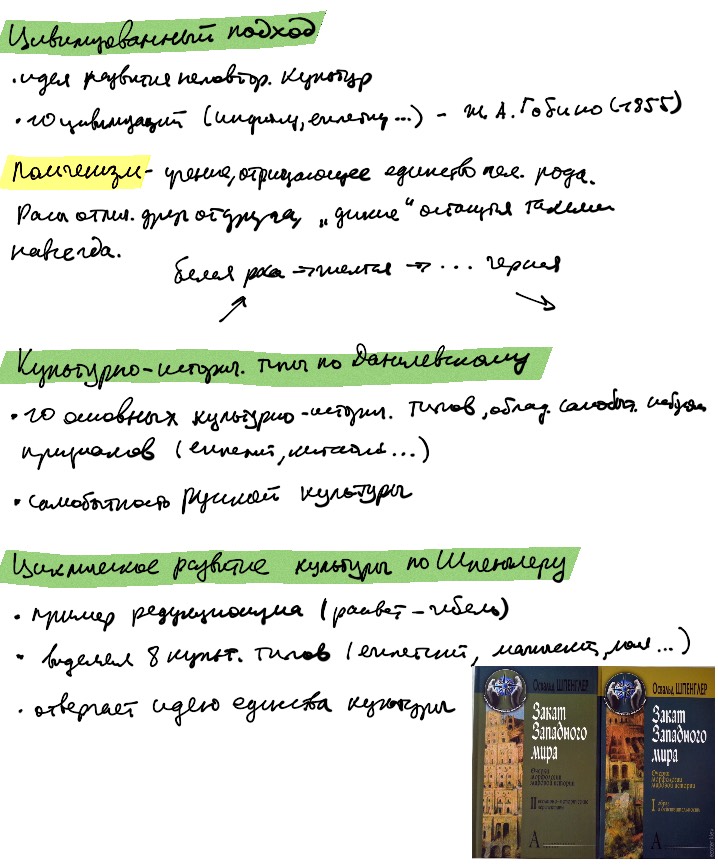 Цивилизованный подход
• идея развития неповтор. культур
• 10 цивилизаций (индийцы, египтяне ...) – Ж. А. Гобино (1855)
Полигенизм – учение, отрицающее единство чел. рода.
Расы отлич. друг от друга, „дикие“ останутся такими
навсегда.
белая раса → желтая → ... черная
Культурно-истори. типы по Данилевскому
• 10 основных культурно-истори. типов, облад. самобыт.
признаков (египет, китай ...)
• самобытность русской культуры
Циклическое развитие культуры по Шпенглеру
• пример редукционизма (расцвет – гибель)
• выделял 8 культ. типов (египетский, майя ...)
• отвергает идею единства культуры
Освальд ШПЕНГЛЕР
Закат
Западного
мира
Очерки
морфологии
мировой истории
II
А
Освальд ШПЕНГЛЕР
Закат
Западного
мира
Очерки
морфологии
мировой истории
I образ
и действительность
А